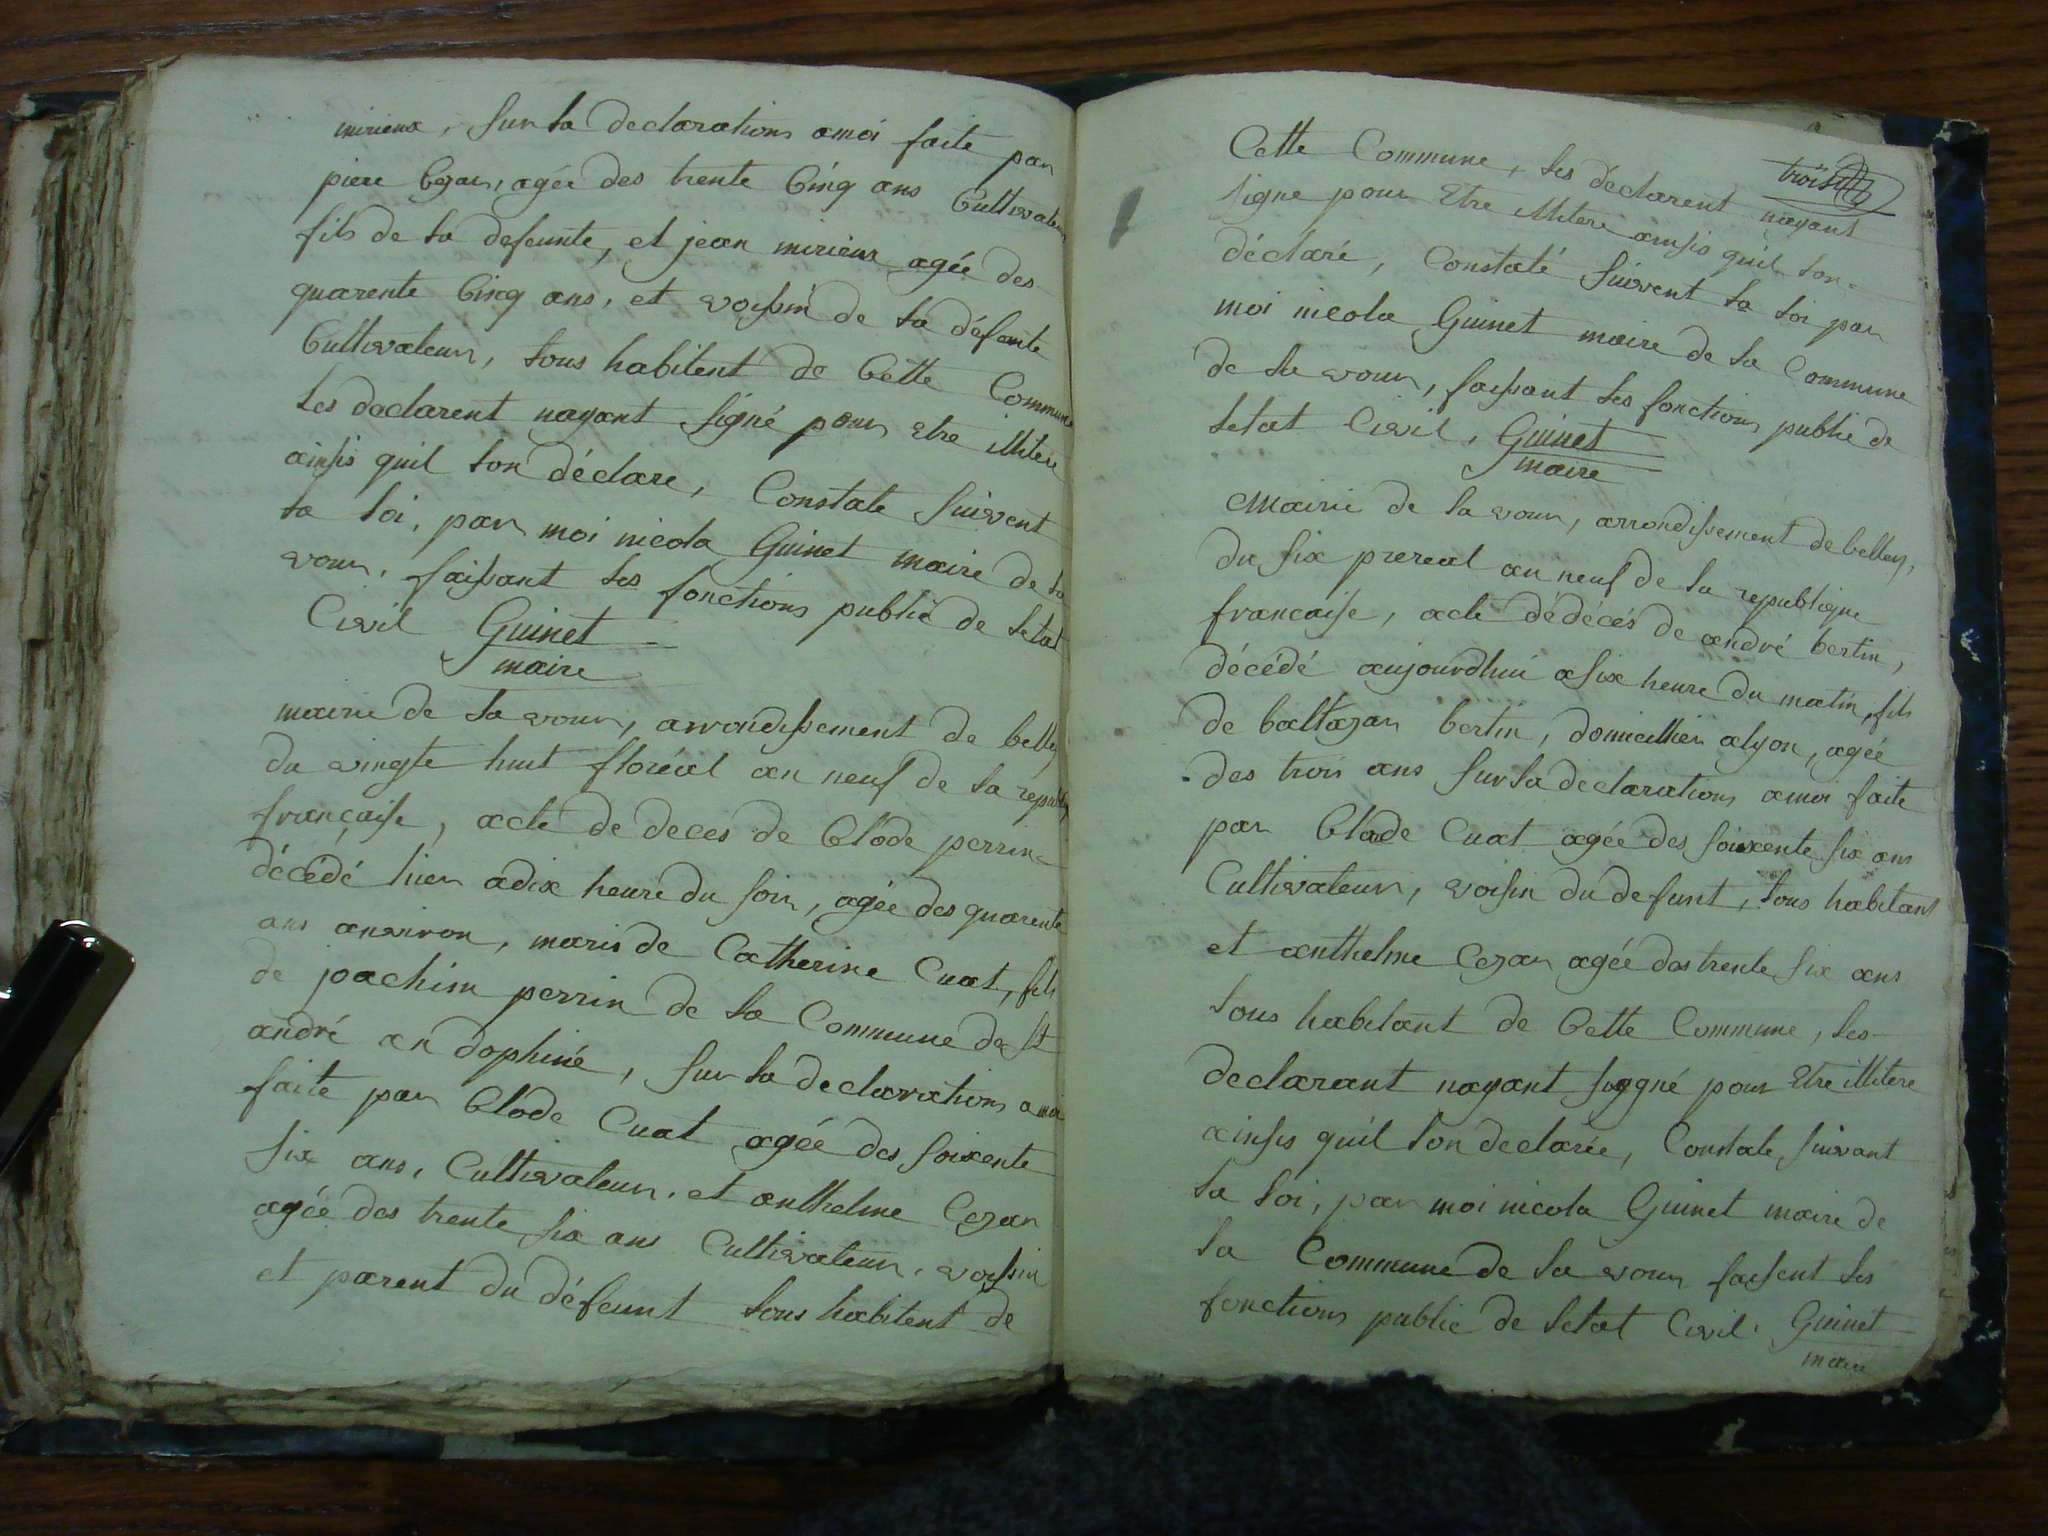 mirieux, sur la declarations amoi faite par
piere Cezar, agée des trente Cinq ans Cultivateur
fils de la defeunte, et jean mirieux agée des
quarente Cinq ans, et voissin de la défante
Cultivateur, tous habitent de Cette Commune
les declarent nayant signé pour etre illitere
ainsis quil lon déclare, Constate suivent
la loi, par moi nicola Guinet maire de la
vour, faissant les fonctions public de letat
Civil Guinet
maire
mairie de la vour, arrondissement de belley
du vingte huit floréal an neuf de la republiq
française, acte de deces de Clode perrin
décédé hier adix heure du soir, agée des quarente
ans anviron, maris de Catherine Cuat, fils
de joachim perrin de la Commune de St
andré an dophiné, sur la declarations amoi
faite par Clode Cuat agée des soixente
six ans, Cultivateur, et anthelme Cezar
agée des trente six ans Cultivateur, voissin
et parent du défeunt tous habitent de
troisu
Cette Commune, les déclarent nayant
signe pour Etre illitere ainsis quil lon
déclaré, Constaté suivent la loi par
moi nicola Guinet maire de la Commune
de la vour, faissant les fonctions public de
letat Civil, Guinet
maire
Mairie de la vour, arrondissement de belley,
du six prereal an neuf de la republique
francaise, acte dédécés de andré bertin,
décédé aujourdhui asix heure du matin, fils
de baltazar bertin, domicillier alyon, agée
des trois ans sur la declarations amoi faite
par Clode Cuat agée des soixente six ans
Cultivateur, voisin du defunt, tous habitant
et anthelme Cezar agée des trente six ans
tous habitant de Cette Commune, les
declarant nayant sygné pour Etre illitere
ainsis quil lon declarée, Constate, suivant
la loi, par moi nicola Guinet maire de
la Commune de la vour faisent les
fonctions public de letat Civil. Guinet
maire